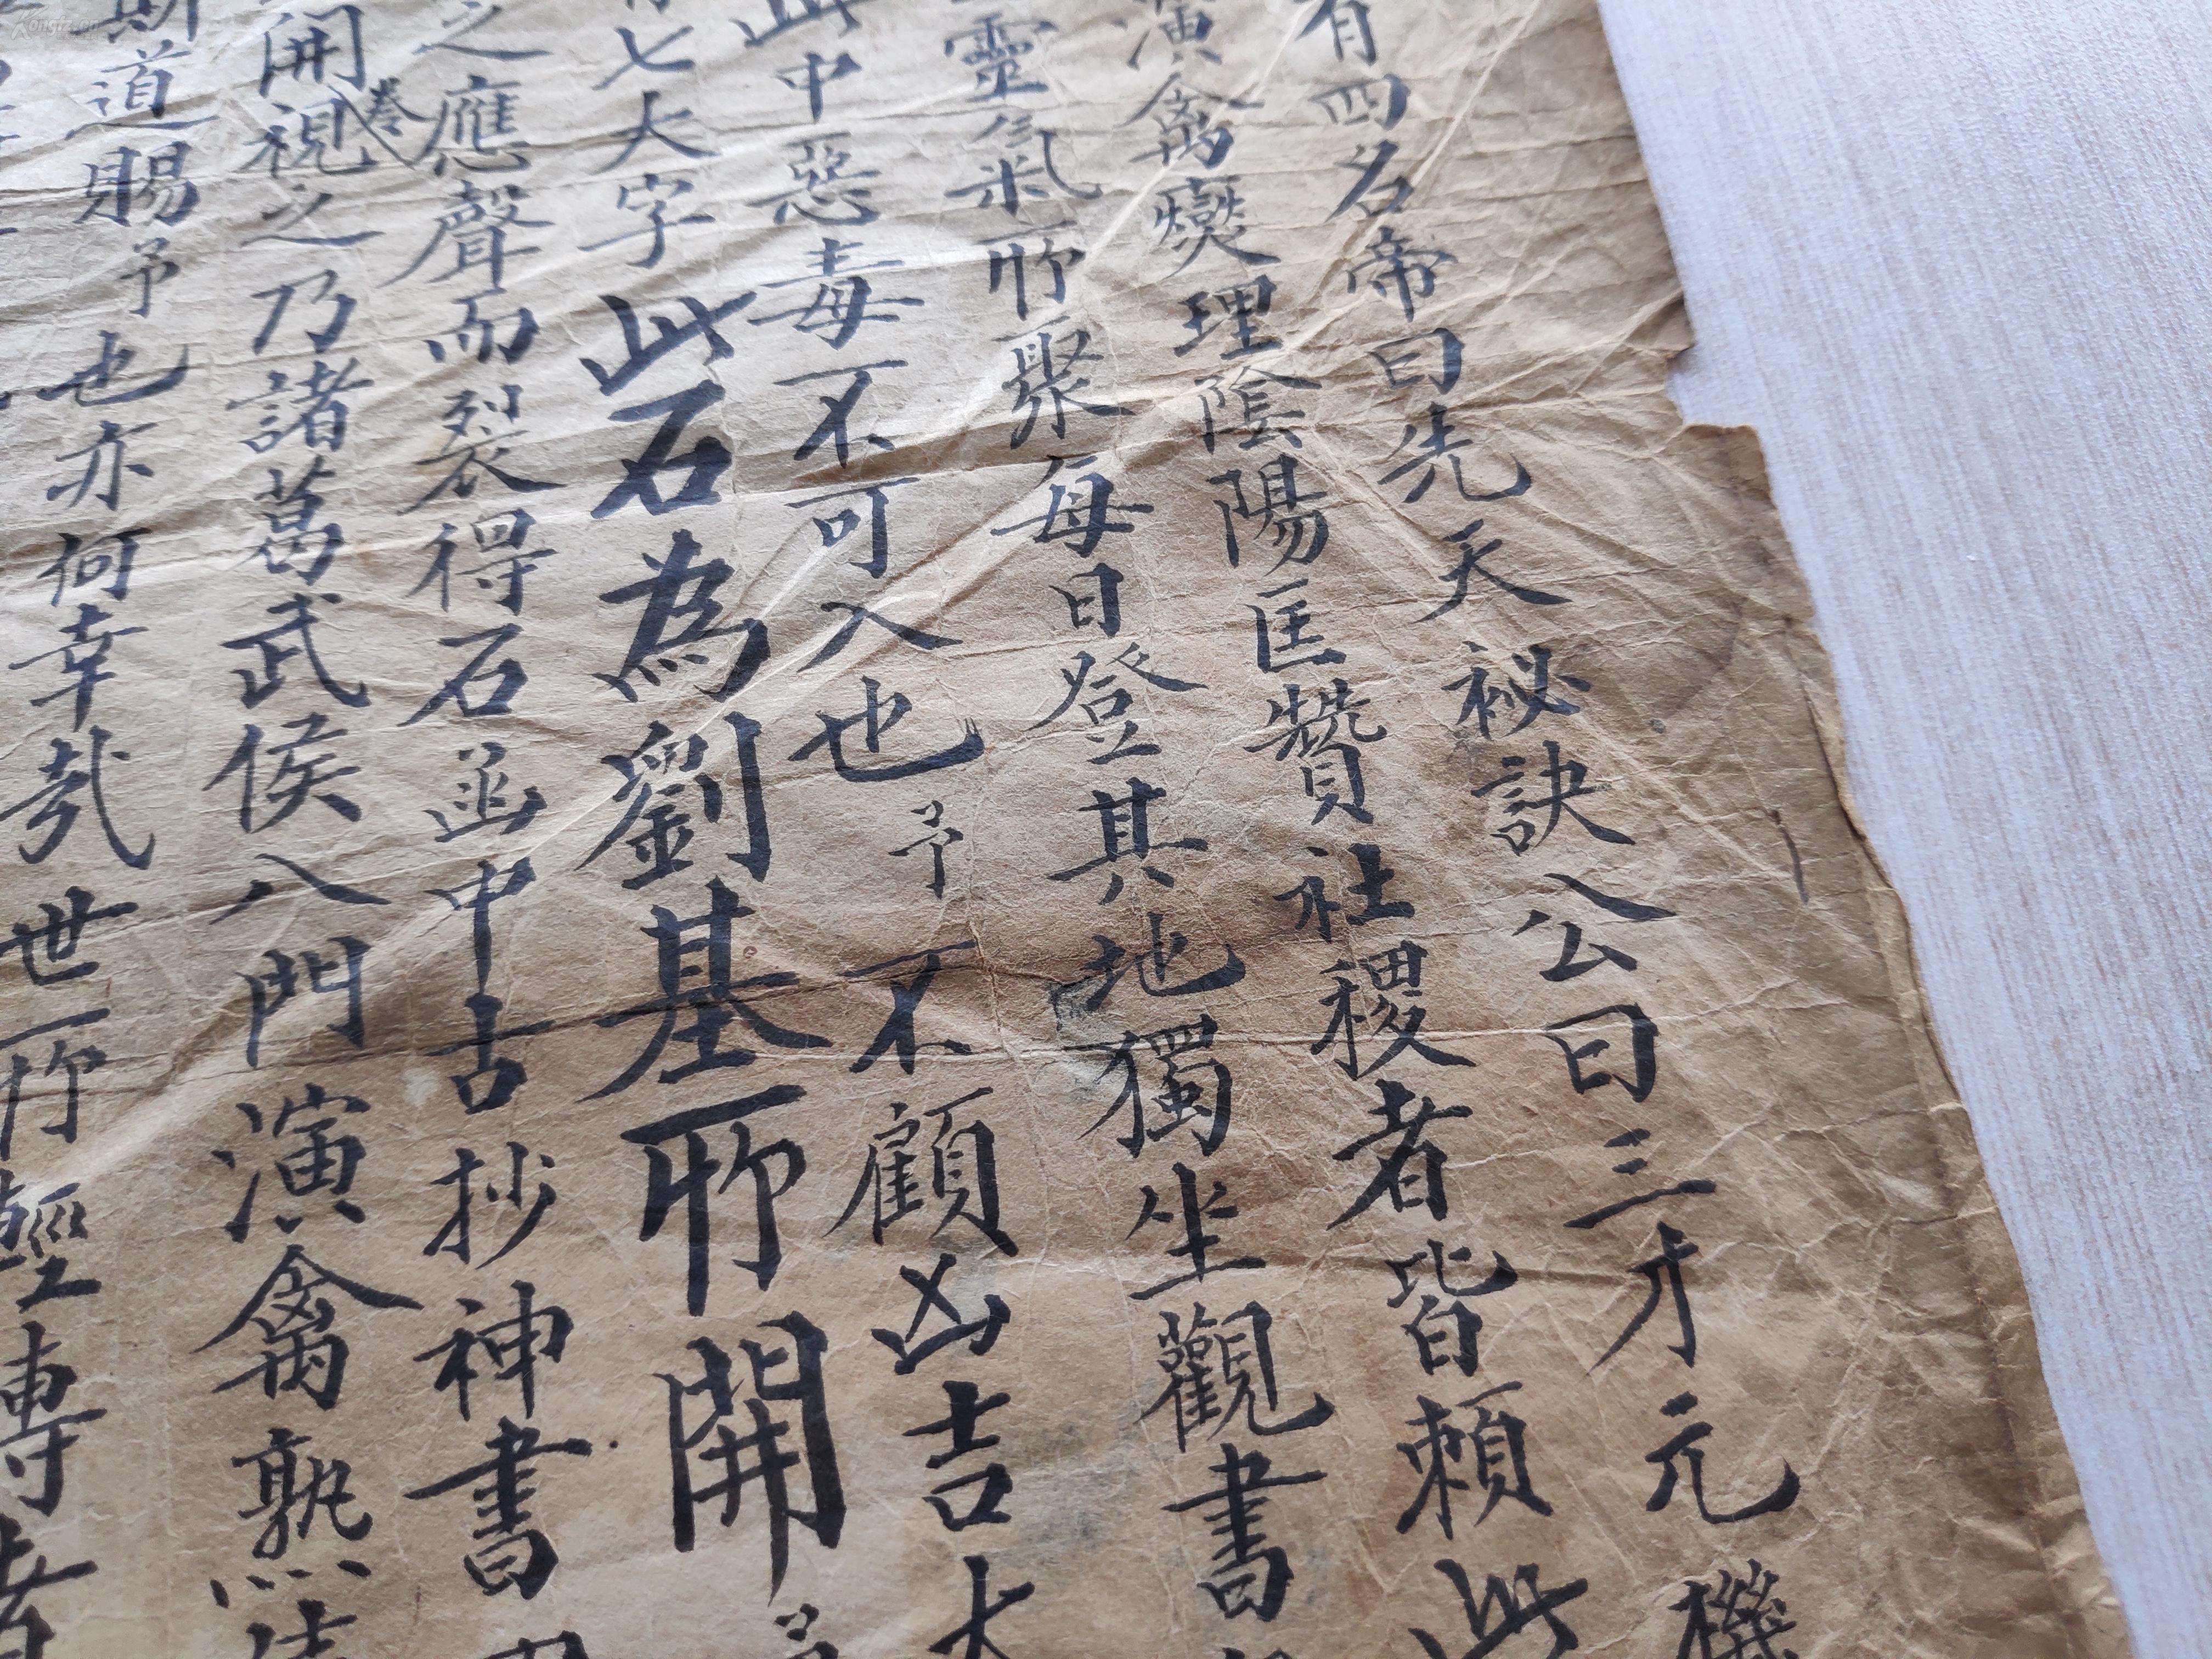 有四名帝曰先天秘訣入公曰三才元機
演禽爕理陰陽匡贊社稷者皆賴此
靈氣所聚每日登其地獨坐觀書
此中惡毒不可入也予不顧凶吉大
七大字此石為劉基所開予
之應聲而裂得石函中古抄神書
開卷視之乃諸葛武侯入門演禽熟
斯道賜予也亦何幸哉世所經專者